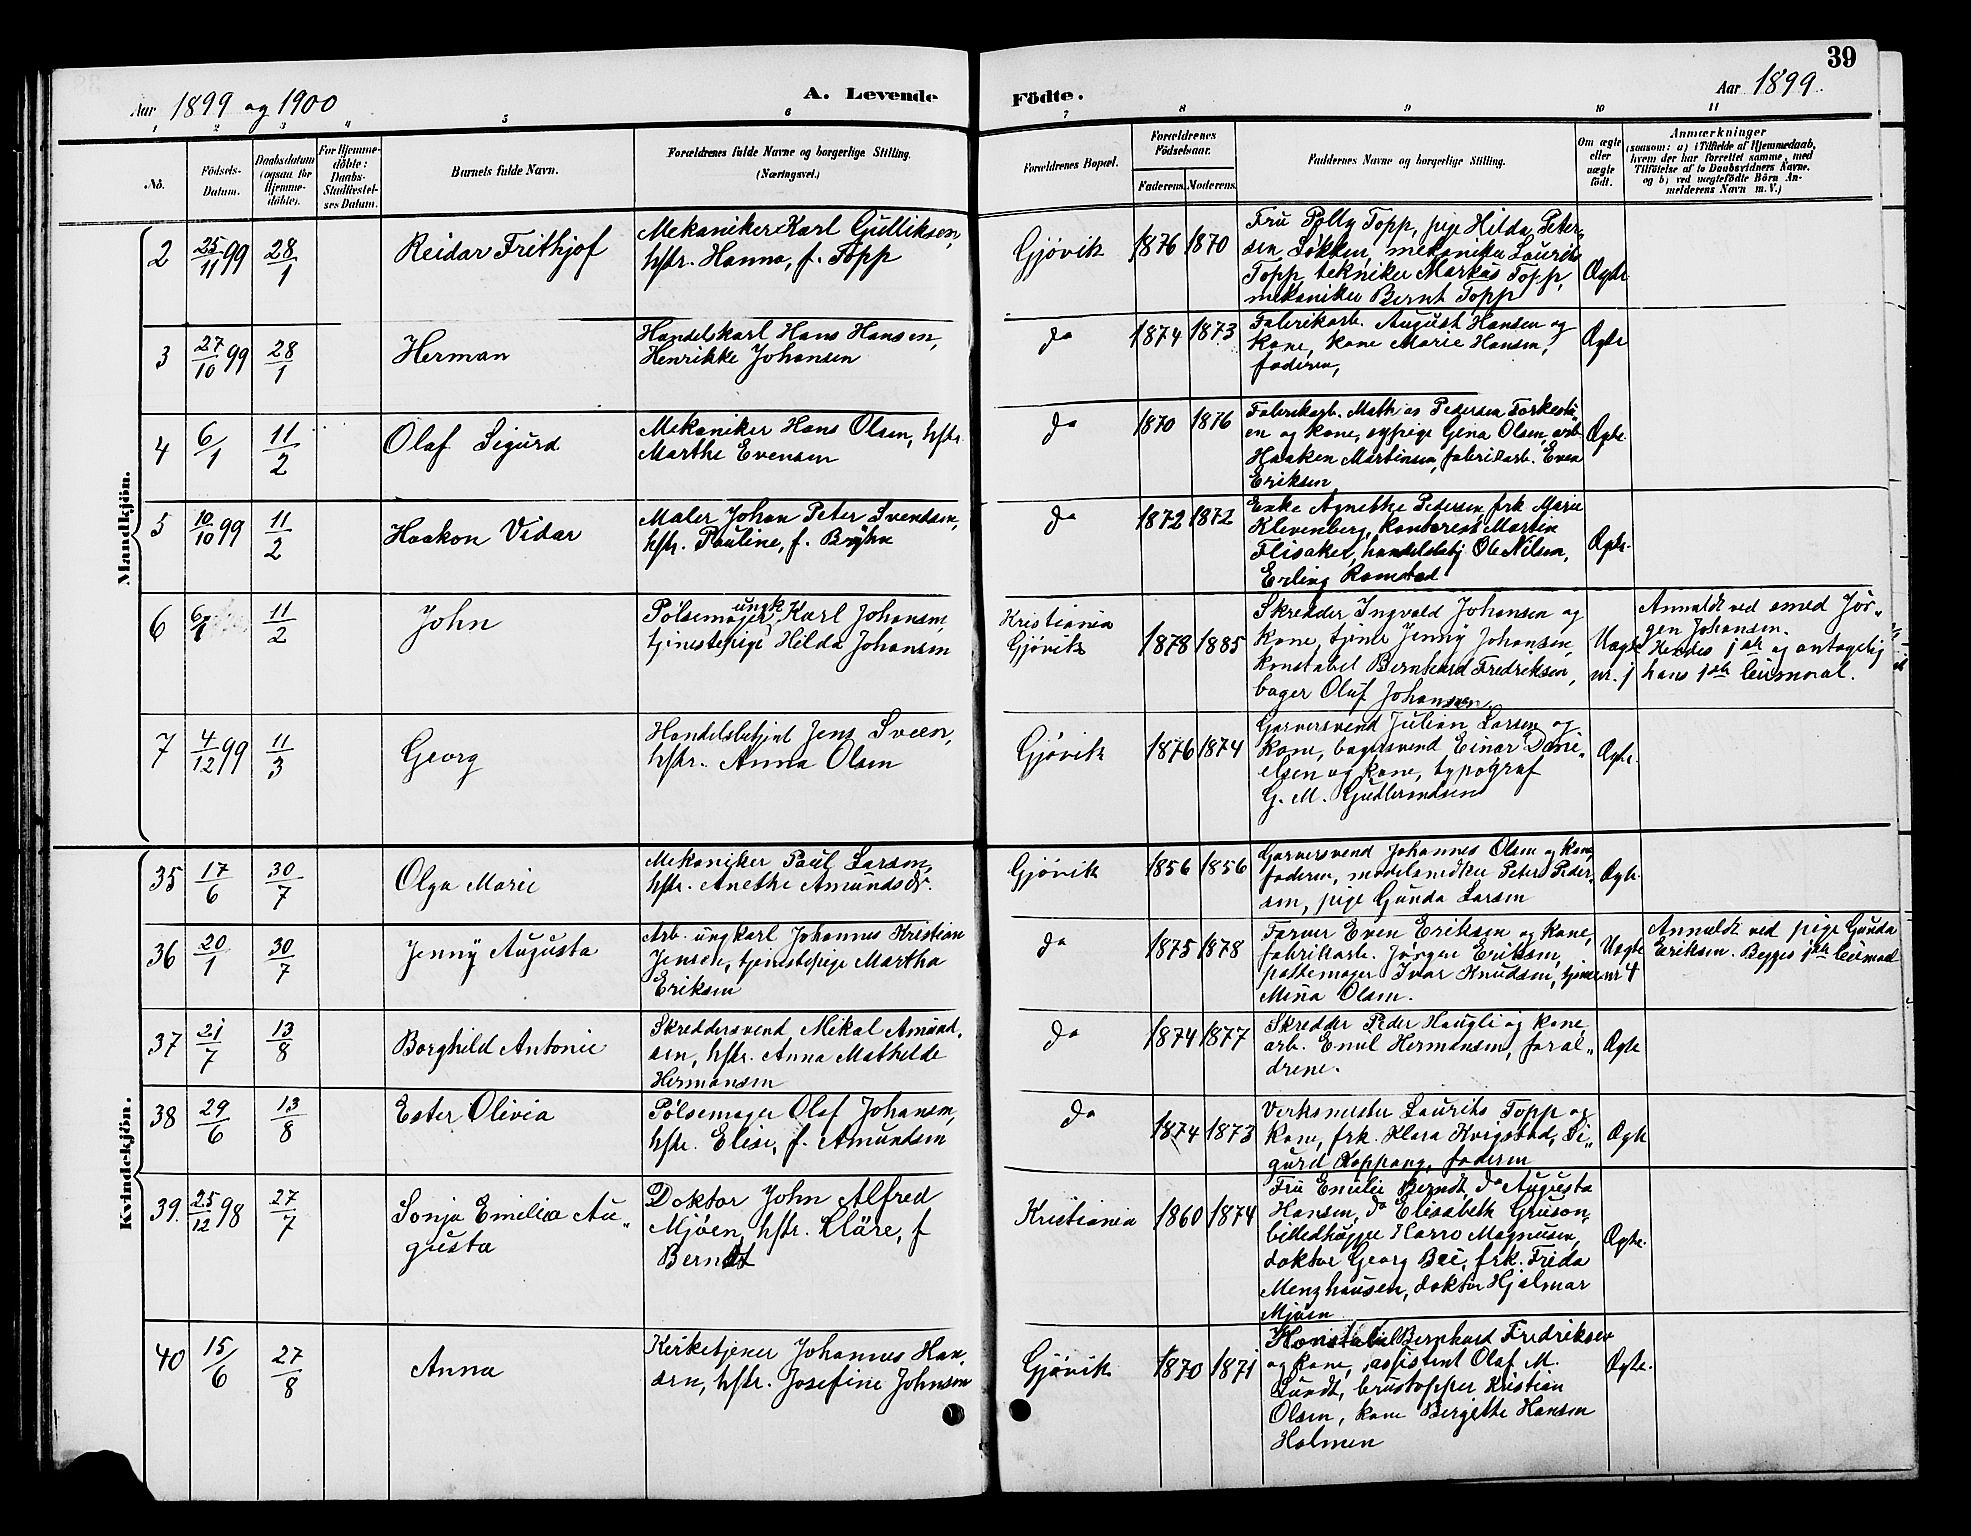 39
Aar 1899 og 1900
A. Levende
Födte.
Aar 1899.
1 2 3 4 5 6 7 8 9 10 11
No.
Födsels-
Datum.
Daabsdatum
(ogsaa for
Hjemme-
döbte).
For Hjemme-
döbte:
Daabs-
Stadfestel-
ses Datum.
Barnets fulde Navn.
Forældrenes fulde Navne og borgerlige Stilling.
(Næringsvei.)
Forældrenes Bopæl.
Forældrenes
Födselsaar.
Faderens. Moderens.
Faddernes Navne og borgerlige Stilling.
Om ægte
eller
uægte
født.
Anmærkninger
(saasom: a) i Tilfælde af Hjemmedaab,
hvem der har forrettet samme, med
Tilføielse af to Daabsvidners Navne.
og b) ved uægtefödte Börn An-
melderens Navn m. V.)
Mandkjön.
2
25/11 99
28/1
Reidar Frithjof
Mekaniker Karl Gulliksen,
hstr. Hanna, f. Topp
Gjøvik
1876 1870
Fru Polly Topp, pige Hilda Peter-
sen Løkken, mekaniker Laurits
Topp, tekniker Markus Topp,
mekaniker Bernt Topp
Ægte
3
27/10 99
28/1
Herman
Handelskarl Hans Hansen,
Henrikke Johansen
do
1874 1873
Fabrikarb. August Hansen og
kone, kone Marie Hansen,
faderen,
Ægte
4
6/1
11/2
Olaf Sigurd
Mekaniker Hans Olsen, hstr.
Marthe Evensen
do
1870 1876
Fabrikarb. Mathias Pedersen
en og kone, sypige Gina Olsen, arb.
Haaken Martinsen, fabrikarb. Even
Eriksen
Ægte.
5
10/10 99
11/2
Haakon Vidar
Maler Johan Peter Svendsen,
hstr. Pauline, f. Bryhn
do
1872 1872
Enke Agnethe Pedersen, frk Marie
Klevenberg, kontorist Martin
Flisaker, handelsbetj. Ole Nilsen,
Erling Ramstad
Ægte.
6
6/1
11/2
John
Pølsemager, ungk. Karl Johansen,
tjenestepige Hilda Johansen
Kristiania
Gjøvik
1878 1885
Skredder Ingvald Johansen og
kone, tjener Jenny Johansen,
konstabel Bernhard Fredriksen,
bager Oluf Johansen
Uægte
nr. 1
Anmeldt ved smed Jør-
gen Johansen.
Hendes 1ste og antagelig
hans 1ste leiermaal.
7
4/12 99
11/3
Georg
Handelsbetjent Jens Sveen,
hstr. Anna Olsen
Gjøvik
1876 1874
Garversvend Julian Larsen og
kone, bagersvend Einar Dani-
elsen og kone, typograf
G. M. Gudbrandsen
Ægte.
Kvindekjön.
35
17/6
30/7
Olga Marie
Mekaniker Paul Larsen,
hstr. Anethe Amundsdr.
Gjøvik
1856 1856
Garversvend Johannes Olsen og kone,
faderen, modelsnedker Peter Peder-
sen, pige Gunda Larsen
Ægte.
36
20/1
30/7
Jenny Augusta
Arb. ungkarl Johannes Kristian
Jensen, tjenestepige Martha
Eriksen
do
1875 1878
Farver Even Eriksen og kone,
fabrikarb. Jørgen Eriksen,
pottemager Ivar Knudsen, tjener
Mina Olsen.
Uægte
nr 4
Anmeldt ved pige Gunda
Eriksen. Begges 1ste leiermaal
37
21/7
13/8
Borghild Antonie
Skreddersvend Mikal Amund-
sen, hstr. Anna Mathilde
Hermansen
do
1874 1877
Skredder Peder Haugli og kone,
arb. Emil Hermansen, foræl-
drene.
Ægte
38
29/6
13/8
Ester Olivia
Pølsemager Olaf Johansen,
hstr. Elise, f. Amundsen
do
1874 1873
Verksmester Laurits Topp og
kone, frk. Klara Kvigstad, Si-
gurd Koppang, faderen
Ægte
39.
25/12 98
27/7
Sonja Emilia Au-
gusta
Doktor John Alfred
Mjøen, hstr. Kläre, f
Berndt
Kristiania
1860 1874
Fru Emilie Berndt, do Augusta
Hansen, do Elisabeth Gruson,
billedhugger Harro Magnusen,
doktor Georg Bei, frk. Frida
Menzhausen, doktor Hjalmar
Mjøen
Ægte.
40
15/6
27/8
Anna
Kirketjener Johannes Han-
sen, hstr. Josefine Johnsen
Gjøvik
1870 1871
Konstabel Bernhard Fredriksen
og kone, assistent Olaf M.
Lundt, brustopper Kristian
Olsen, kone Bergitte Hansen
Holmen
Ægte.